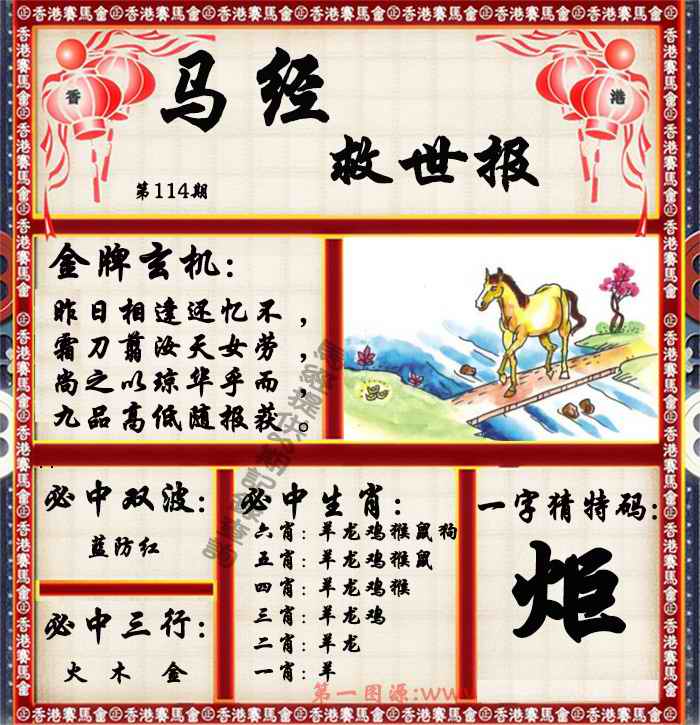 香港賽馬會㊣香港賽馬會㊣香港賽馬會㊣香港賽馬會
香 港
马经
救世报
第114期
金牌玄机：
昨日相逢还忆不，
霜刀翦汝天女劳，
尚之以琼华乎而，
九品高低随报获。
必中双波：
蓝防红
必中三行：
火 木 金
必中生肖：
六肖：羊龙鸡猴鼠狗
五肖：羊龙鸡猴鼠
四肖：羊龙鸡猴
三肖：羊龙鸡
二肖：羊龙
一肖：羊
一字猜特码：
炬
第一图源:www